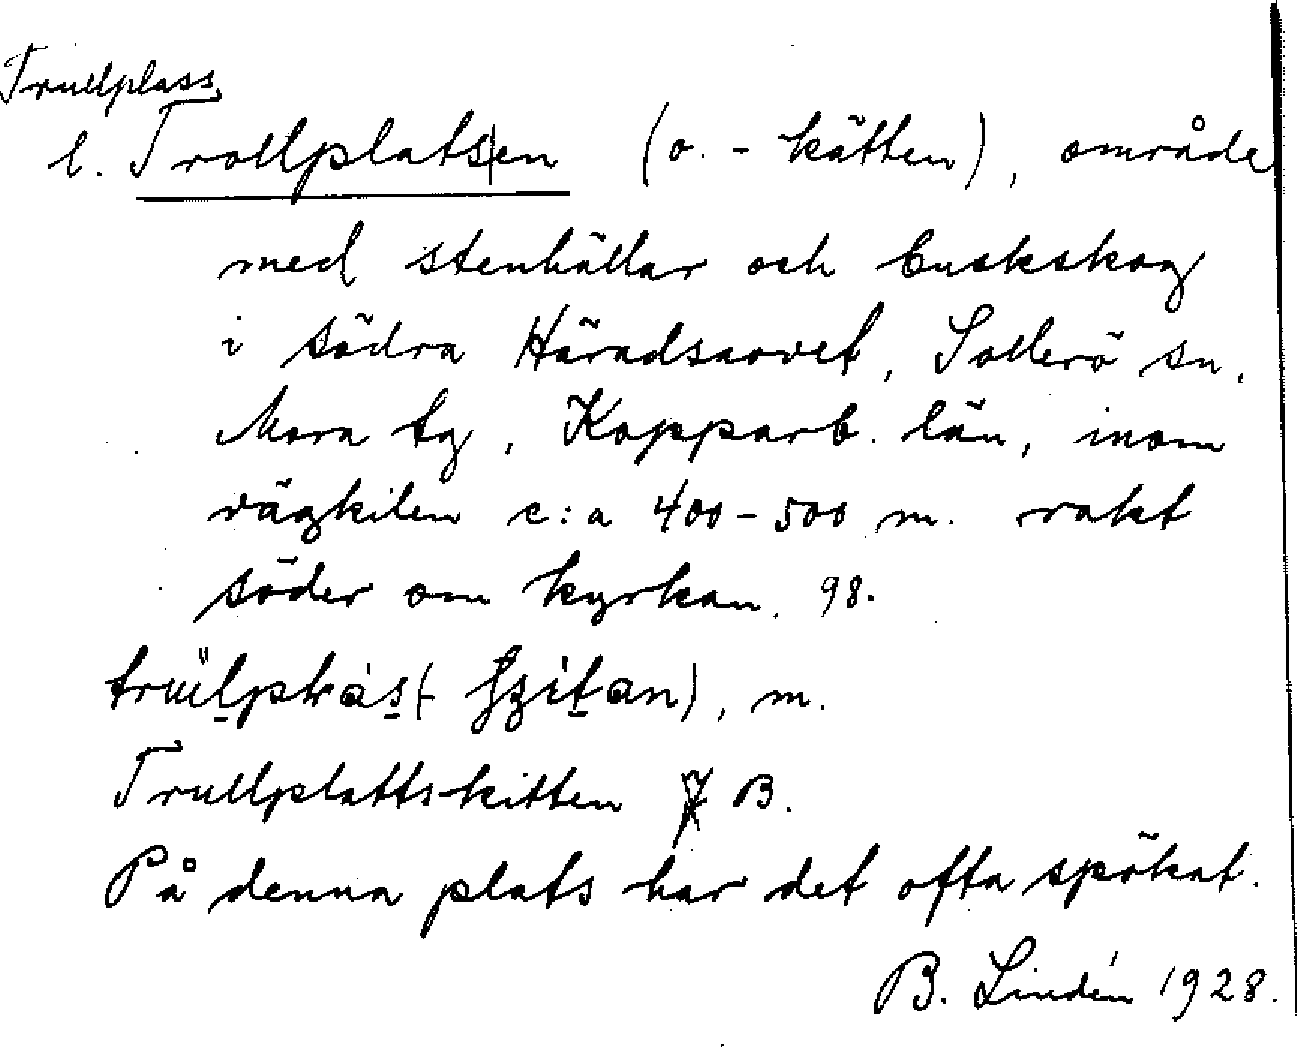 Trullplass
l. Trollplats|en (o. - kätten), område
med stenhällar och buskskog
i södra Häradsarvet, Sollerö sn,
Mora tg, Kopparb. län, inom
vägkilen c:a 400-500 m. rakt
söder om kyrkan. 98.
m.
Trullplattskitten B.
På denna plats har det ofta spökat.
B. Lindén 1928.